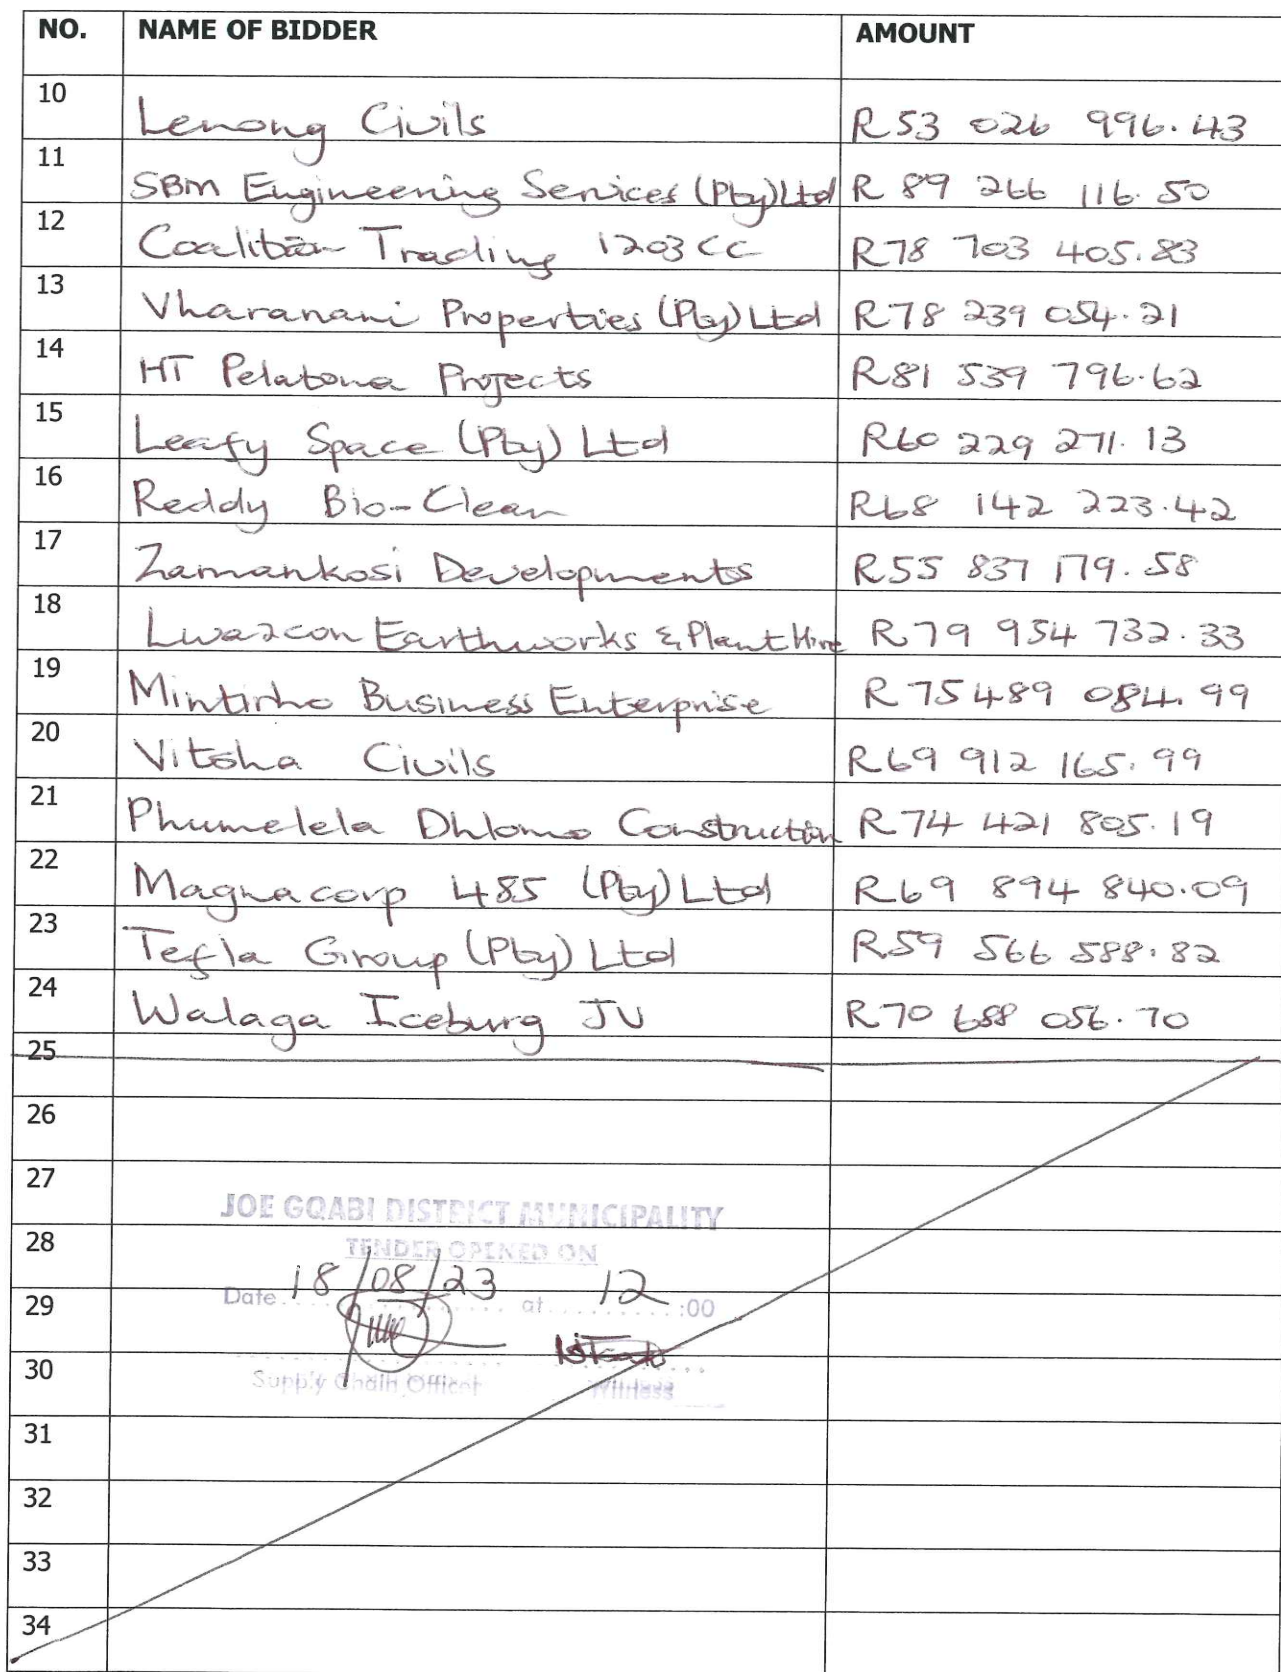 NO. NAME OF BIDDER AMOUNT
10 Lenong Civils R53 026 996.43
11 SBM Engineering Services (Pty) Ltd R 89 266 116.50
12 Coalition Trading 1203 CC R78 703 405.83
13 Vharanani Properties (Pty) Ltd R78 239 054.21
14 HT Pelatona Projects R81 539 796.62
15 Leafy Space (Pty) Ltd R60 229 271.13
16 Reddy Bio-Clean R68 142 223.42
17 Zamankosi Developments R55 837 179.58
18 Lwazcon Earthworks & Plant Hire R 79 954 732.33
19 Mintirho Business Enterprise R 75 489 084.99
20 Vitsha Civils R69 912 165.99
21 Phumelela Dhlomo Construction R 74 421 805.19
22 Magnacorp 485 (Pty) Ltd R69 894 840.09
23 Tefla Group (Pty) Ltd R59 566 588.82
24 Walaga Iceburg JV R70 688 056.70
25
26
27
JOE GQABI DISTRICT MUNICIPALITY
28
TENDER OPENED ON
29 Date 18/08/23 at 12 :00
30
Supply Chain Officer Witness
31
32
33
34